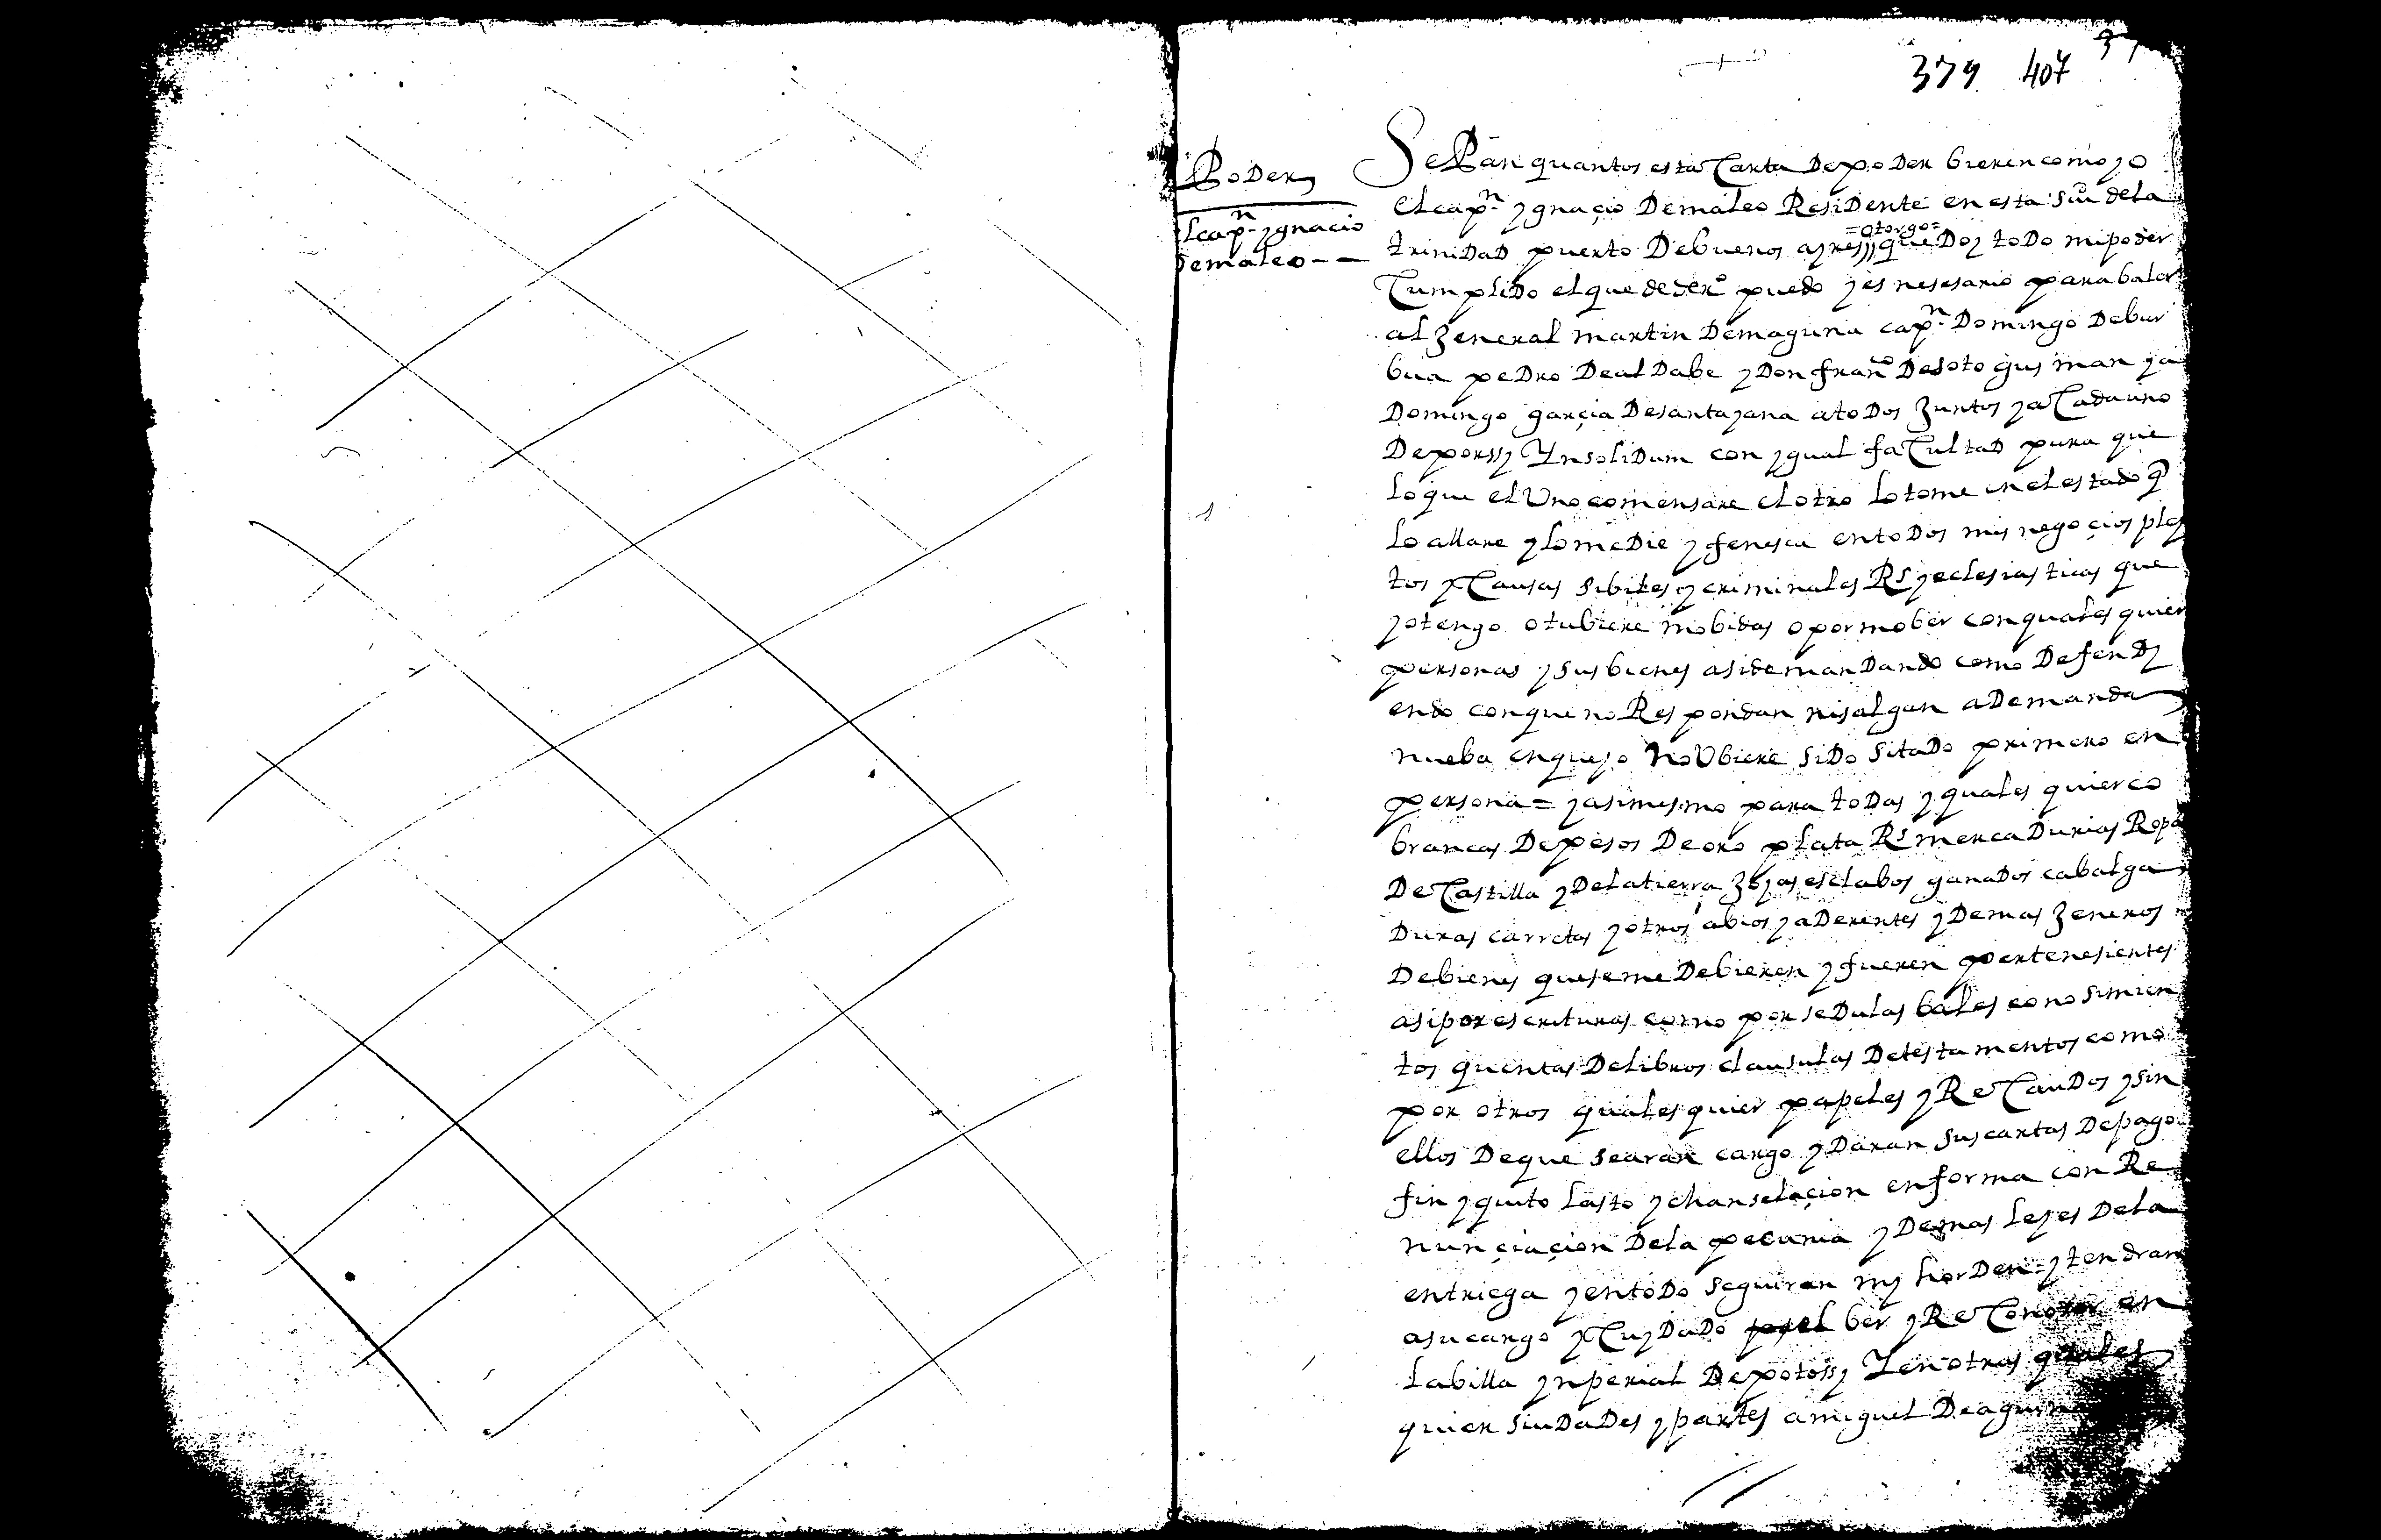 379 407 37
Poder
el capn ygnacio
de maleo
Sepan quantos esta Carta de poder bieren como yo
el capn ygnaçio de maleo Residente en esta siud de la
trinidad puerto de buenos ayres =otorgo= que doy todo mi poder
Cumplido el que de dero puedo y es nesesario para baler
al Jeneral martin de maguna capn domingo de bur
bua pedro de aldabe y don franco de soto gusman ya
domingo garçia de santayana a todos Juntos y a Cada uno
de por ssy Ynsolidum con ygual faCultad para que
lo que el Uno comensare el otro lo tome en el estado q
lo allare y lo medie y fenesca en todos mis negoçios pley
tos y Causas sibiles y criminales Rs y eclesiasticas que
yo tengo o tubiere mobidas o por mober con quales quier
personas y sus bienes asi demandando como defendy
endo con que no Respondan ni salgan a demanda
nueba en que yo no Ubiere sido sitado primero en
persona = y asimismo para todas y quales quier co
brancas de pesos de oro plata Rs mercadurias Ropa
de Castilla y de la tierra Joyas esclabos ganados cabalga
duras carretas y otros abios y aderentes y demas Jeneros
de bienes que se me debieren y fueren pertenesientes
asi por escrituras como por sedulas bales conosimien
tos quentas de libros clausulas de testamentos como
por otros quales quier papeles y ReCaudos y sin
ellos de que se aran cargo y daran sus cartas de pago
fin y quito lasto y chanselaçion en forma con Re
nunçiaçion de la pecunia y demas leyes de la
entriega y en todo seguiran my horden = y tendran
a su cargo y Cuydado ber y ReConoser en
la billa ynperial de potossy Y en otras quales
quier siudades y partes a miguel de aguirre